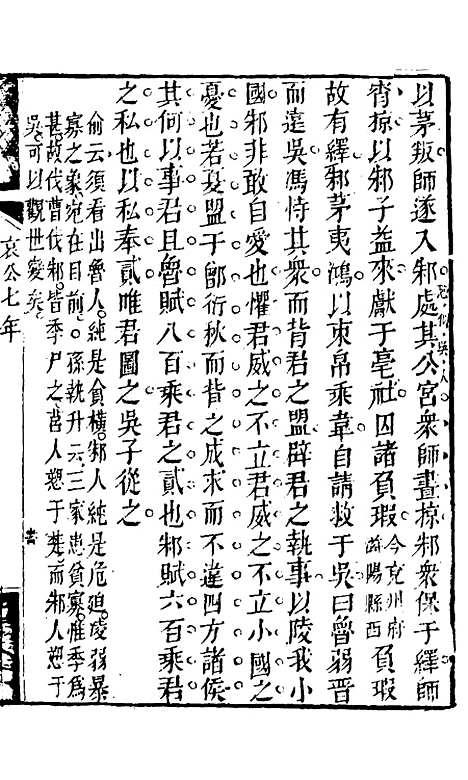 以茅叛師遂入邾處其公宮衆師晝掠邾衆保于繹師
宵掠以邾子益來獻于亳社囚諸負瑕今兗州府嵫陽縣西負瑕
故有繹邾茅夷鴻以束帛乘韋自請救于吳曰魯弱晉
而遠吳馮恃其衆而背君之盟辟君之執事以陵我小
國邾非敢自愛也懼君威之不立君威之不立小國之
憂也若夏盟于鄫衍秋而背之成求而不違四方諸侯
其何以事君且魯賦八百乘君之貳也邾賦六百乘君
之私也以私奉貳唯君圖之吳子從之
俞云須看出魯人純是貪橫邾人純是危廹陵弱暴
寡之象宛在目前孫執升云三家患貧寡惟季爲
甚故伐曹伐邾皆季尸之莒人愬于楚而邾人愬于
吳可以觀世變矣
哀公七年